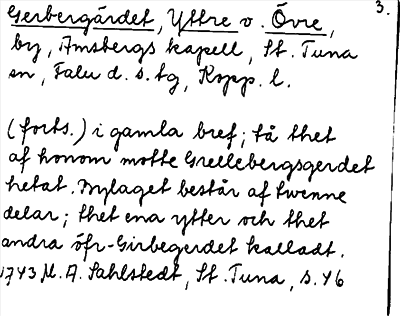 3.
Gerbergärdet, Yttre o. Övre,
by, Amsbergs kapell, St. Tuna
sn, Falu d. s. tg, Kopp. l.
(forts.) i gamla bref; tå thet
af honom motte Grellebergsgerdet
hetat. Bylaget består af twenne
delar; thet ena ytter och thet
andra öfr-Girbegerdet kalladt.
1743 M. A. Sahlstedt, St. Tuna, s. 46